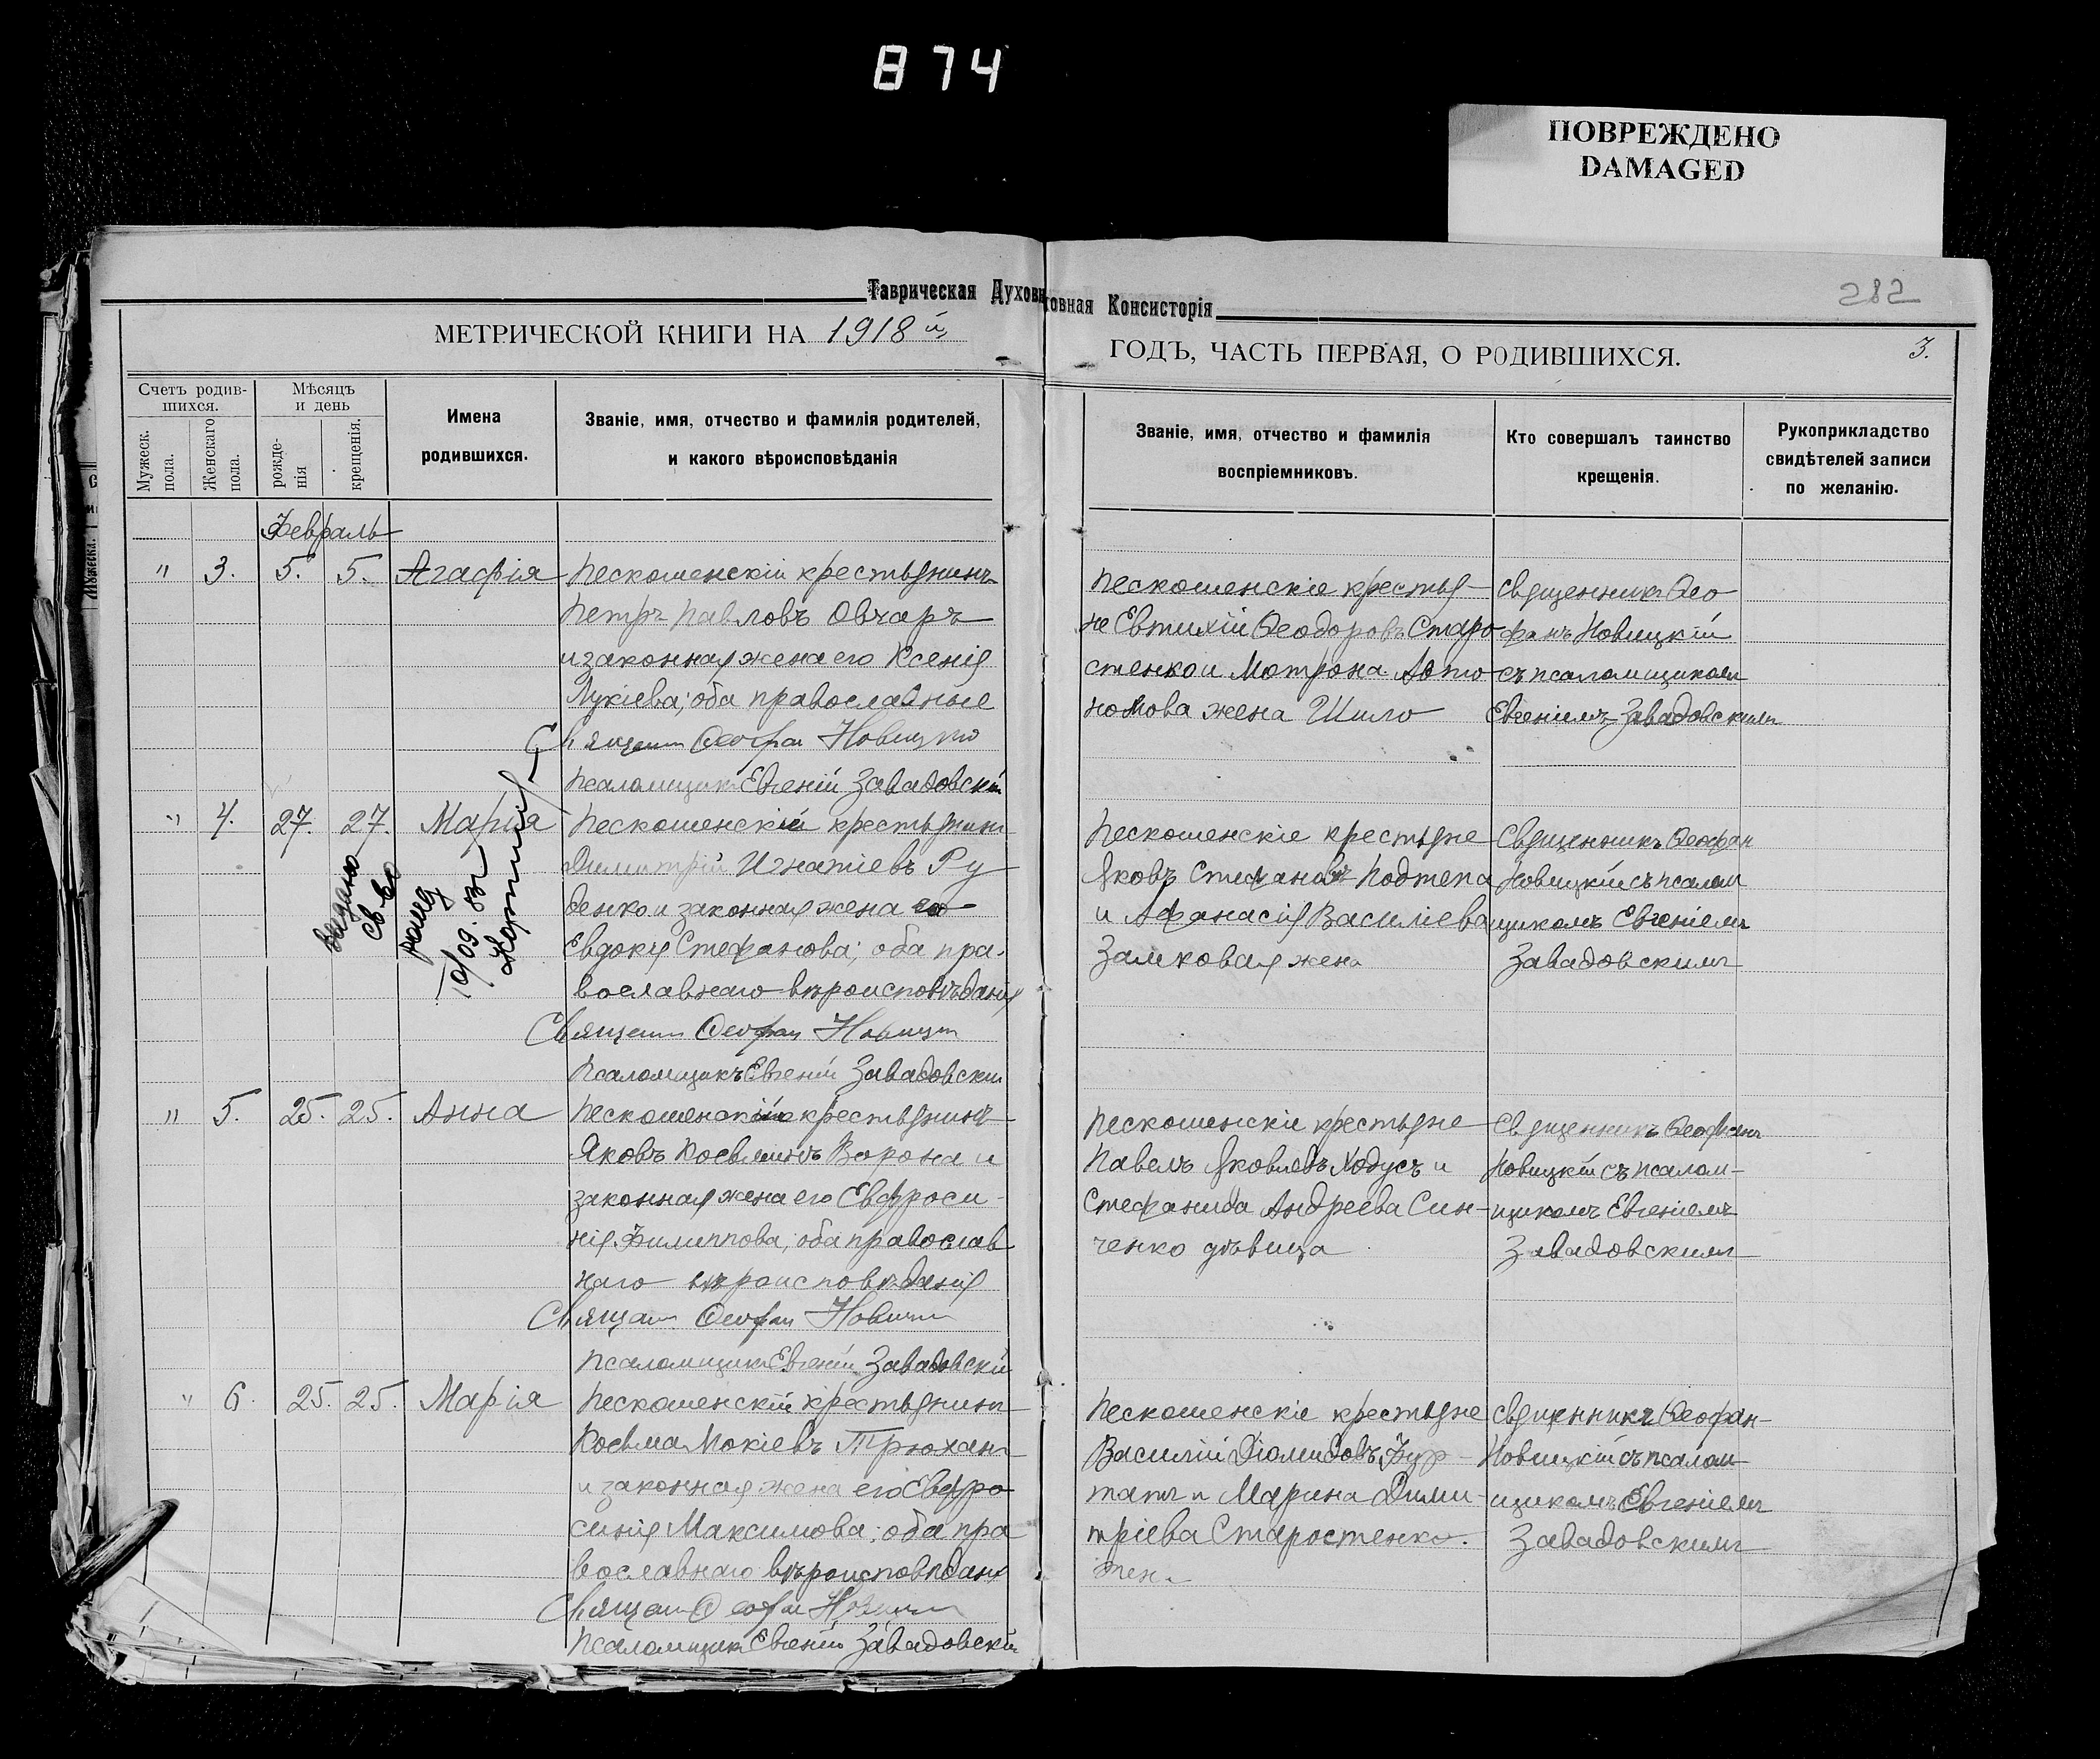 874
ПОВРЕЖДЕНО
DAMAGED
Таврическая Духовная Консисторія
282
МЕТРИЧЕСКОЙ КНИГИ НА 1918 й
ГОДЪ, ЧАСТЬ ПЕРВАЯ, О РОДИВШИХСЯ.
3.
Счетъ родив-
шихся.
Мужеск.
пола.
Женскаго
пола.
Мѣсяцъ
и день
рожде-
нія
крещенія.
Имена
родившихся.
Званіе, имя, отчество и фамилія родителей,
и какого вѣроисповѣданія
Званіе, имя, отчество и фамилія
воспріемниковъ.
Кто совершалъ таинство
крещенія.
Рукоприкладство
свидѣтелей записи
по желанію.
Февраль
" 3. 5. 5. Агафія
Пескошенскій крестьянинъ
Петръ Павловъ Овчаръ
и законная жена его Ксенія
Лукіева; оба православные
Священ Ѳеофан Новицкій
Псаломщикъ Евгеній Завадовскій
Пескошенскіе крестья-
не Евтихій Ѳеодоровъ Старо
стенко и Мотрона Авто-
номова жена Шило
Священникъ Ѳео
фанъ Новицкій
съ псаломщикомъ
Евгеніемъ Завадовскимъ
" 4. 27. 27. Марія
Выдано
св-во
10/09. 83г
Пескошенскій крестьянинъ
Димитрій Игнатіевъ Ру
денко и законная жена его
Евдокія Стефанова; оба пра-
вославнаго вѣроисповѣданія
Священ Ѳеофан Новицк
Псаломщикъ Евгеній Завадовскій
Пескошенскіе крестьяне
Яковъ Стефановъ Подтепа
и Афанасія Василіева
Замковая жена
Священникъ Ѳеофан
Новицкій съ псалом
щикомъ Евгеніемъ
Завадовскимъ
" 5. 25. 25. Анна
Пескошенскій крестьянинъ
Яковъ Косьминъ Ворона и
законная жена его Евфроси-
нія Филиппова; оба православ
наго вѣроисповѣданія
Священ Ѳеофан Новицк
Псаломщикъ Евгеній Завадовскій
Пескошенскіе крестьяне
Павелъ Яковлевъ Ходусъ и
Стефанида Андреева Син-
ченко дѣвица
Священникъ Ѳеофанъ
Новицкій съ псалом-
щикомъ Евгеніемъ
Завадовскимъ
" 6. 25. 25. Марія
Пескошенскій крестьянинъ
Косьма Мокіевъ Трюхан
и законная жена его Евфро
синія Максимова; оба пра
вославнаго вѣроисповѣдан
Священ Ѳеофан Новицк
Псаломщикъ Евгеній Завадовскій
Пескошенскіе крестьяне
Василій Діомидовъ Фур-
татъ и Марина Дими-
тріева Старостенко.
жена
Священникъ Ѳеофан-
Новицкій съ псалом
щикомъ Евгеніемъ
Завадовскимъ